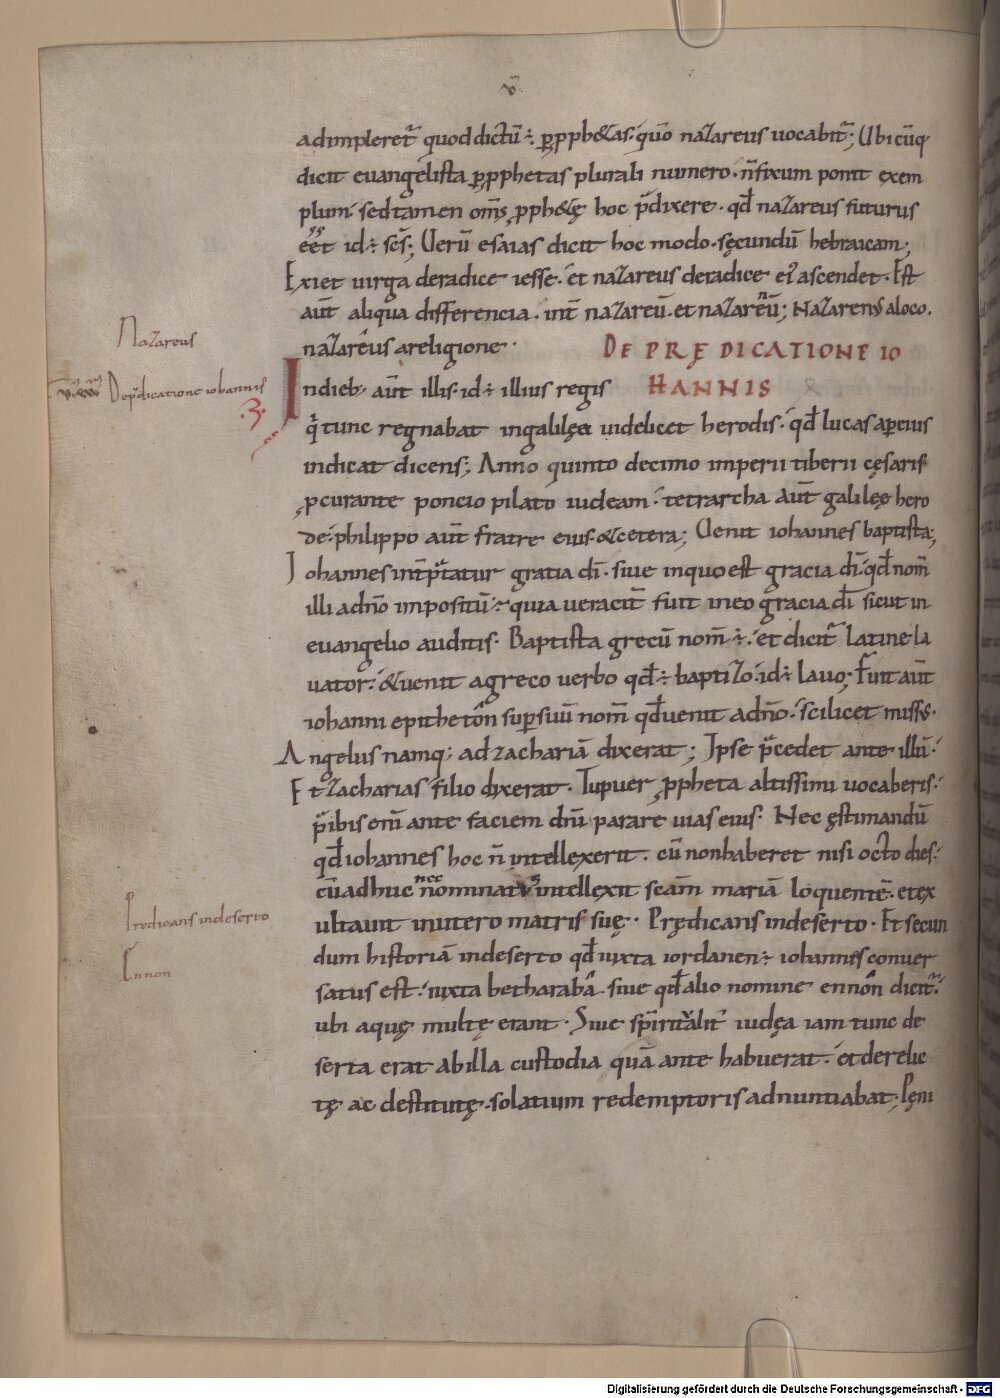 v̄
adimpleret̄ quod dictū ÷ ꝑꝓph&as · qūo nazareus uocabit̄; Ubicūq;
dicit euangelista ꝑꝓphetas plurali numero · n̄ fixum ponit exem
plum · sed tamen om̄s ꝓph&ę hoc p̄dixere · qd̄ nazareus futurus
eēt id ÷ sc̄s; Uerū esaias dicit hoc modo · sęcundū hebraicam;
Exiet uirga deradice iesse · et nazareus deradice ei' ascendet · Est
aūt aliqua differencia · int̄ nazareū · et nazarenū; Nazarenus aloco ·
nazareus areligione ·
DE PRĘDICATIONE IO
HANNIS
Nazareus
Dep̄dicatione iohannis
·3·
Indieb; aūt illis · id ÷ illius regis
q̄ tunc regnabat ingalilęa uidelicet herodis · qd̄ lucas aꝑcius
indicat dicens; Anno quinto decimo imperii tiberii cęsaris
ꝓcurante poncio pilato iudeam · tetrarcha aūt galilęę hero
de · philippo aūt fratre eius · &cetera; Uenit iohannes baptista;
Iohannes int̄p̄tatur gratia dī · siue inquo est gracia dī · qd̄ nom̄
illi adn̄o impositū ÷ quia ueracit̄ fuit ineo gracia dī sicut in
euangelio auditis · Baptista grecū nom̄ ÷ · et dicit̄ latine la
uator · &uenit agreco uerbo qd̄ ÷ baptizo · id ÷ lauo; Fuit aūt
iohanni epitheton suꝑ suū nom̄ qd̄ uenit adn̄o · scilicet missus ·
Angelus namq; ad zachariā dixerat; Ipse p̄cedet ante illū ·
Et zacharias filio dixerat · Tu puer ꝓpheta altissimi uocaberis ·
p̄ibis enī ante faciem dn̄i parare uias eius · Nec ęstimandū
qd̄ iohannes hoc n̄ intellexerit · cū nonhaberet nisi octo dies ·
cū adhuc nec nominatus intellexit scām mariā loquentē · et ex
ultauit inutero matris suę · Prędicans indeserto · Et secun
Predicans indeserto
dum historiā indeserto qd̄ iuxta iordanen ÷ iohannes conuer
Ennon
satus est · iuxta betharabā siue qd̄ alio nomine ennon dicit̄ ·
ubi aquę multę erant · Siue sp̄iritalit̄ iudęa iam tunc de
serta erat abilla custodia quā ante habuerat · et derelic
tę ac destitutę · solatium redemptoris adnuntiabat; Pęni
Digitalisierung gefördert durch die Deutsche Forschungsgemeinschaft - DFG